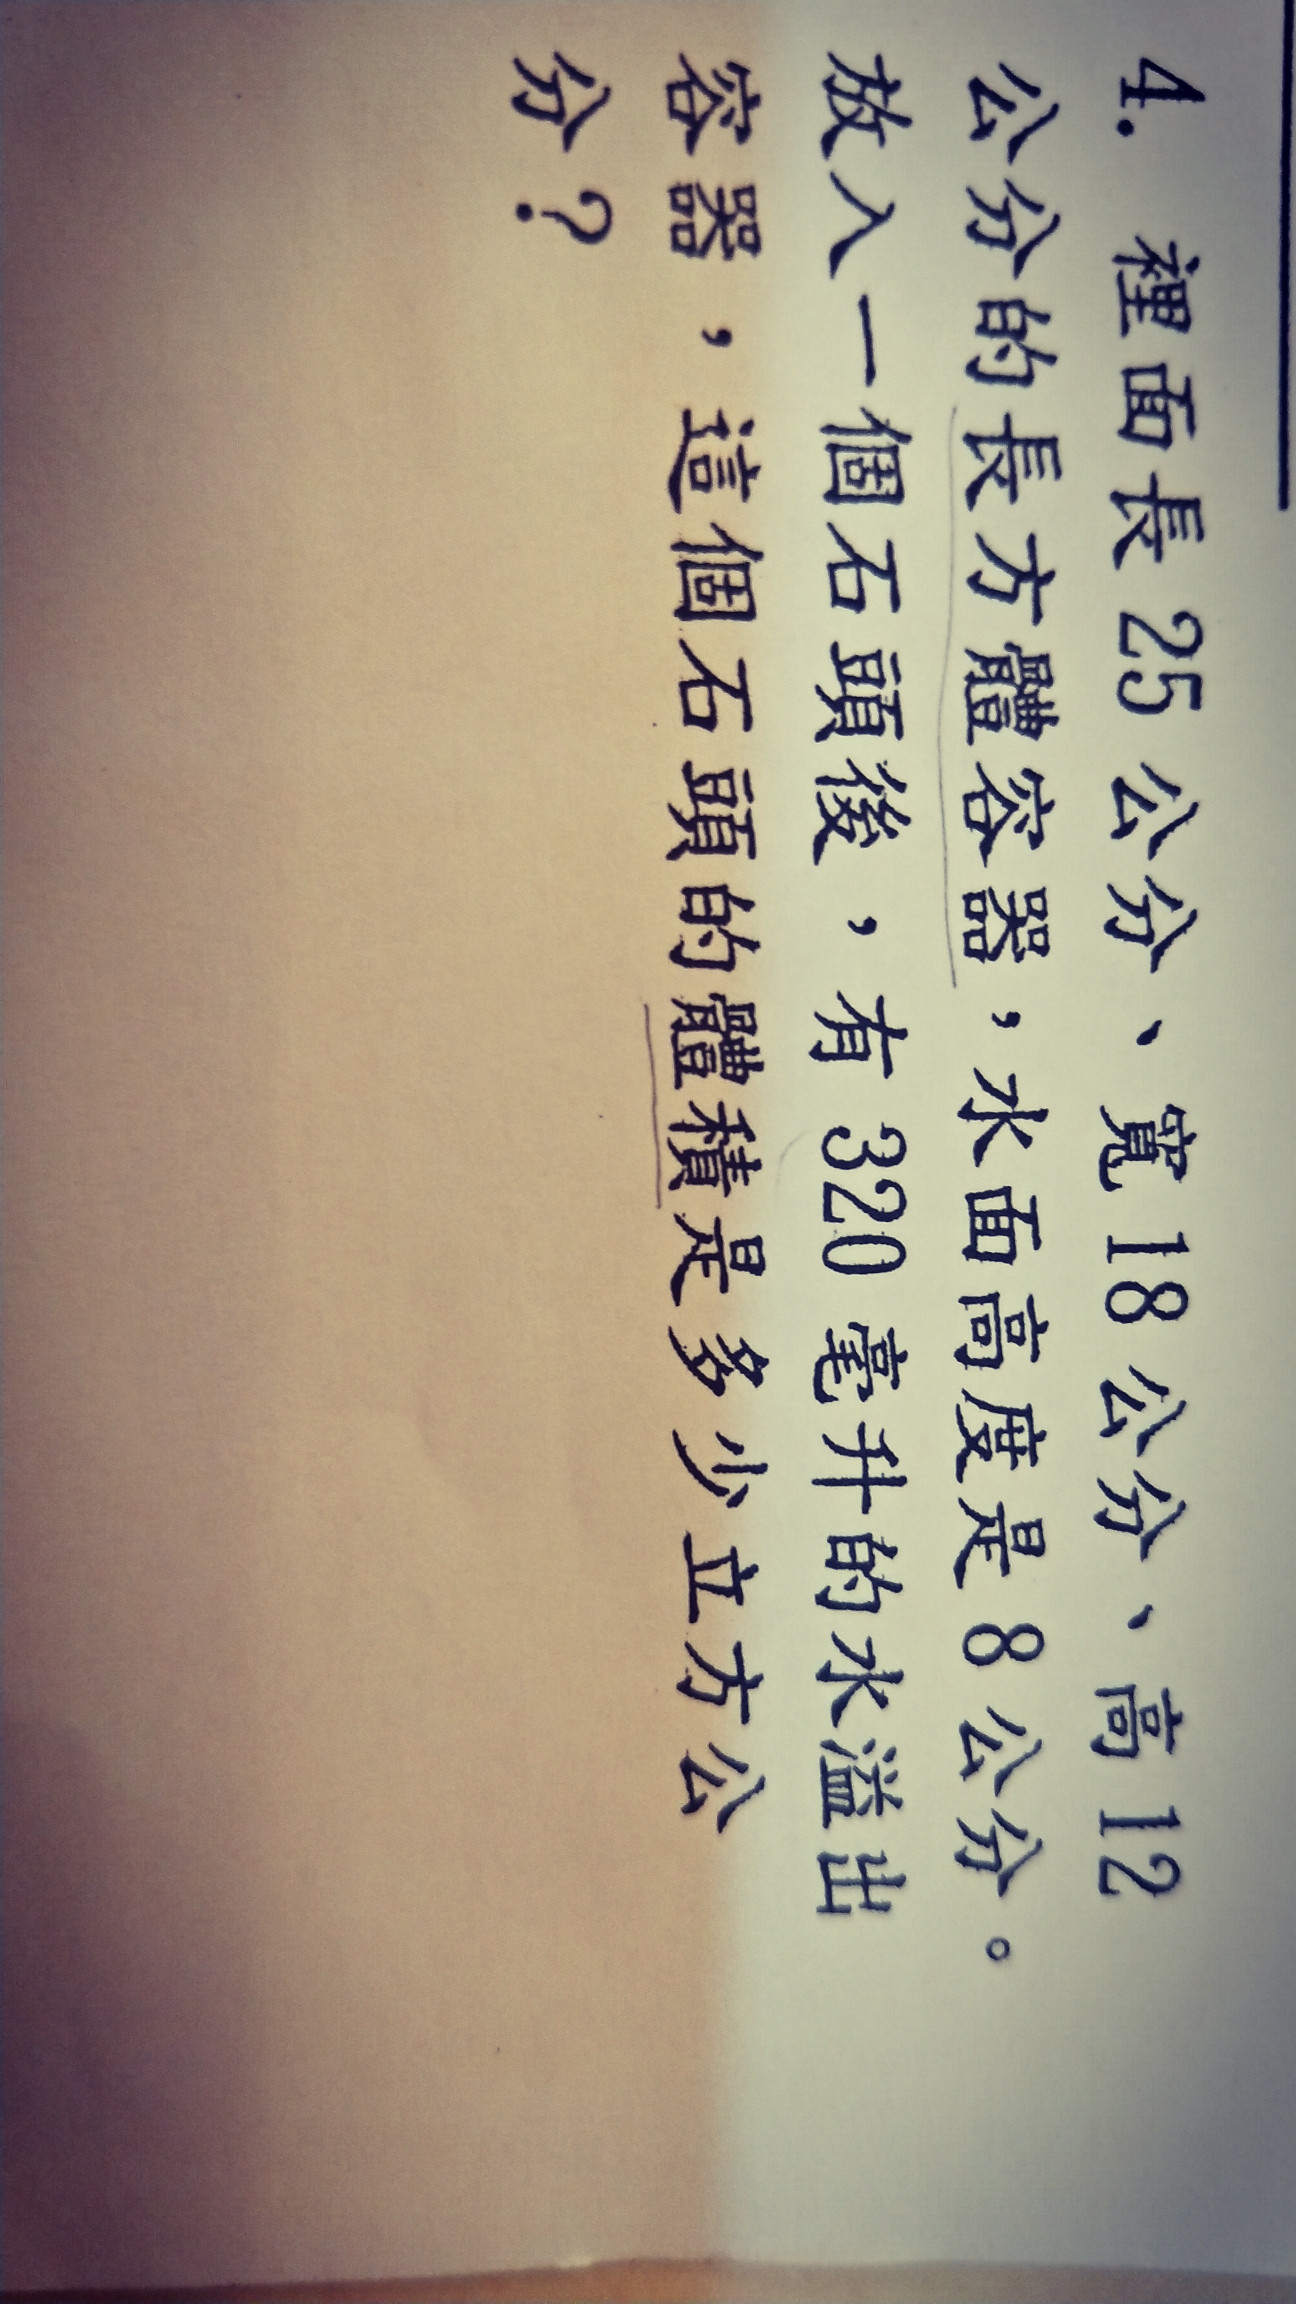 4. 裡面長 25 公分、寬 18 公分、高 12
公分的長方體容器，水面高度是 8 公分。
放入一個石頭後，有 320 毫升的水溢出
容器，這個石頭的體積是多少立方公
分？